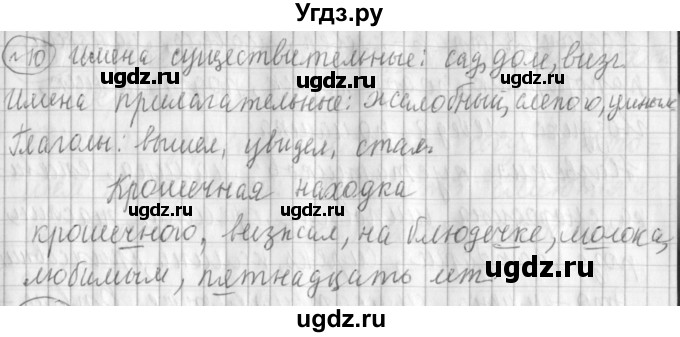 Угдз.ру
№10 Имена существительные: сад, дом, визг
Имена прилагательные: жалобный, слепого, умным
Глаголы: вышел, увидел, стал.
Крошечная находка
крошечного, визжал, на блюдечке, молока,
любимым, пятнадцать лет
ugdz.ru
ugdz.ru
ugdz.ru
ugdz.ru
ugdz.ru
ugdz.ru
ugdz.ru
ugdz.ru
ugdz.ru
ugdz.ru
ugdz.ru